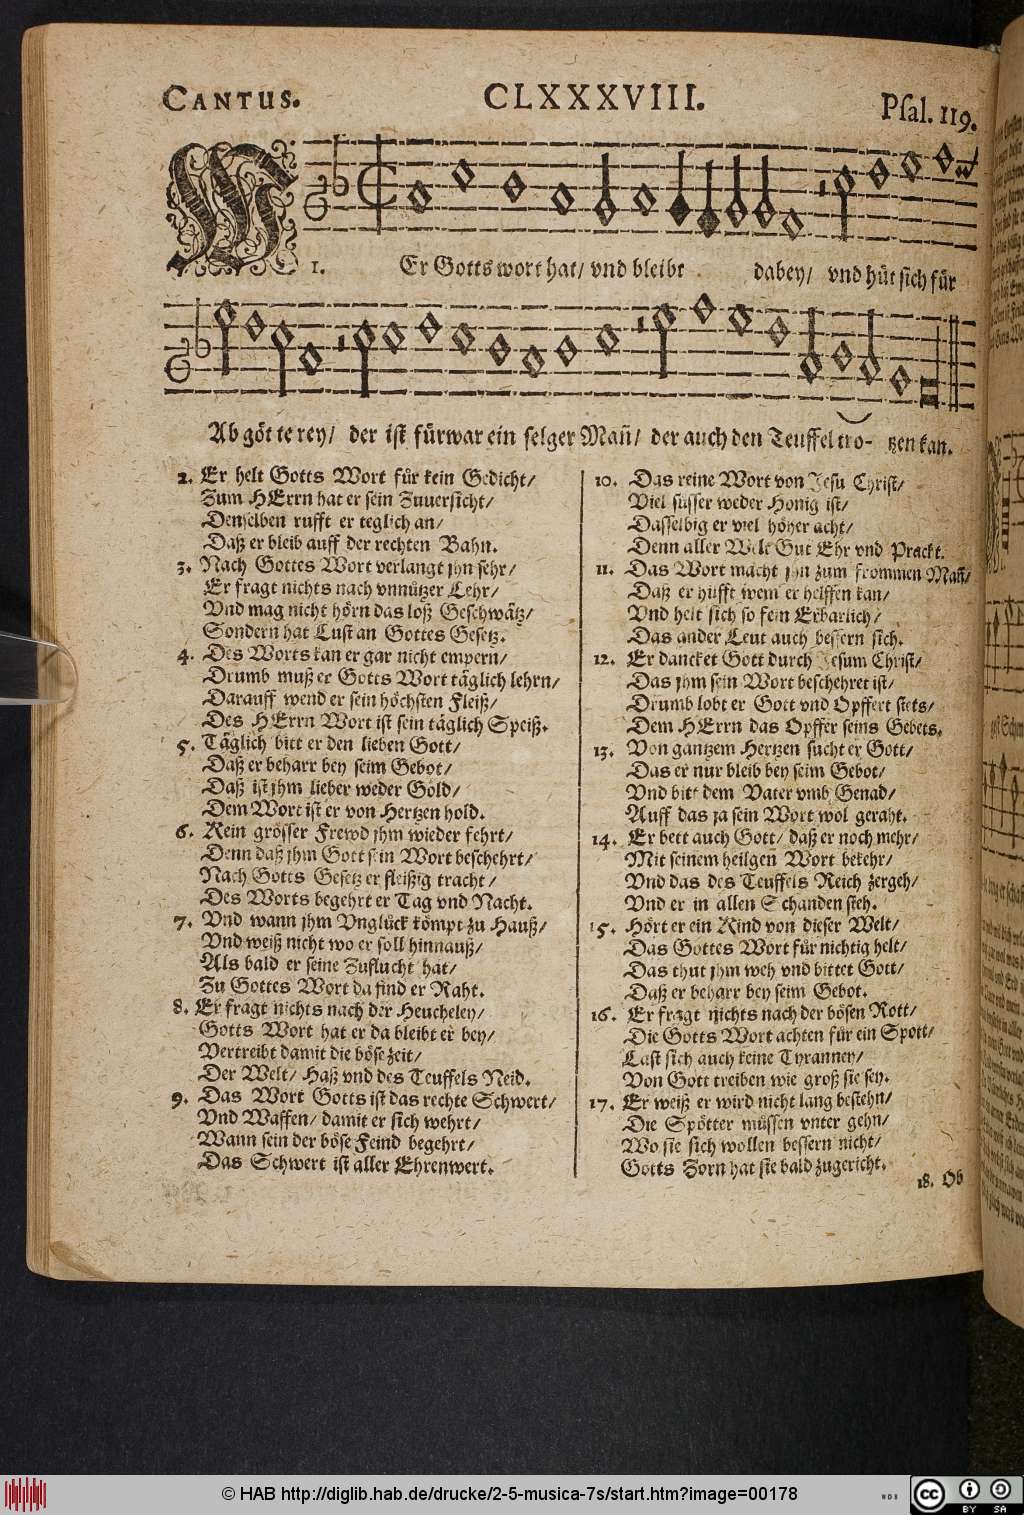 CANTUS.
CLXXXVIII.
Psal. 119.
W
1. Er Gotts wort hat/ vnd bleibt dabey/ vnd hüt sich für
Abgötterey/ der ist fürwar ein selger Mañ/ der auch den Teuffel tro- tzen kan.
2. Er helt Gotts Wort für kein Gedicht/
Zum HErrn hat er sein Zuuersicht/
Denselben rufft er teglich an/
Daß er bleib auff der rechten Bahn.
3. Nach Gottes Wort verlangt jhn sehr/
Er fragt nichts nach vnnützer Lehr/
Vnd mag nicht hörn das loß Geschwätz/
Sondern hat Lust an Gottes Gesetz.
4. Des Worts kan er gar nicht empern/
Drumb muß er Gotts Wort täglich lehrn/
Darauff wend er sein höchsten Fleiß/
Des HErrn Wort ist sein täglich Speiß.
5. Täglich bitt er den lieben Gott/
Daß er beharr bey seim Gebot/
Daß ist jhm lieber weder Gold/
Dem Wort ist er von Hertzen hold.
6. Kein grösser Frewd jhm wieder fehrt/
Denn daß jhm Gott sein Wort beschehrt/
Nach Gotts Gesetz er fleißig tracht/
Des Worts begehrt er Tag vnd Nacht.
7. Vnd wann jhm Vnglück kömpt zu Hauß/
Vnd weiß nicht wo er soll hinnauß/
Als bald er seine Zuflucht hat/
Zu Gottes Wort da find er Raht.
8. Er fragt nichts nach der Heucheley/
Gotts Wort hat er da bleibt er bey/
Vertreibt damit die böse zeit/
Der Welt/ Haß vnd des Teuffels Neid.
9. Das Wort Gotts ist das rechte Schwert/
Vnd Waffen/ damit er sich wehrt/
Wann sein der böse Feind begehrt/
Das Schwert ist aller Ehren wert.
10. Das reine Wort von Jesu Christ/
Viel süsser weder Honig ist/
Dasselbig er viel höher acht/
Denn aller Welt Gut Ehr vnd Pracht.
11. Das Wort macht jhn zum frommen Mañ/
Daß er hilfft wem er helffen kan/
Vnd helt sich so fein Erbarlich/
Das ander Leut auch bessern sich.
12. Er dancket Gott durch Jesum Christ/
Das jhm sein Wort beschehret ist/
Drumb lobt er Gott vnd Opffert stets/
Dem HErrn das Opffer seins Gebets.
13. Von gantzem Hertzen sucht er Gott/
Das er nur bleib bey seim Gebot/
Vnd bitt dem Vater vmb Genad/
Auff das ja sein Wort wol geraht.
14. Er bett auch Gott/ daß er noch mehr/
Mit seinem heilgen Wort bekehr/
Vnd das des Teuffels Reich zergeh/
Vnd er in allen Schanden steh.
15. Hört er ein Kind von dieser Welt/
Das Gottes Wort für nichtig helt/
Das thut jhm weh vnd bittet Gott/
Daß er beharr bey seim Gebot.
16. Er fragt nichts nach der bösen Rott/
Die Gotts Wort achten für ein Spott/
Last sich auch keine Tyranney/
Von Gott treiben wie groß sie sey.
17. Er weiß er wird nicht lang bestehn/
Die Spötter müssen vnter gehn/
Wo sie sich wollen bessern nicht/
Gotts Zorn hat sie bald zugericht.
18. Ob
© HAB http://diglib.hab.de/drucke/2-5-musica-7s/start.htm?image=00178
WDB
cc BY SA